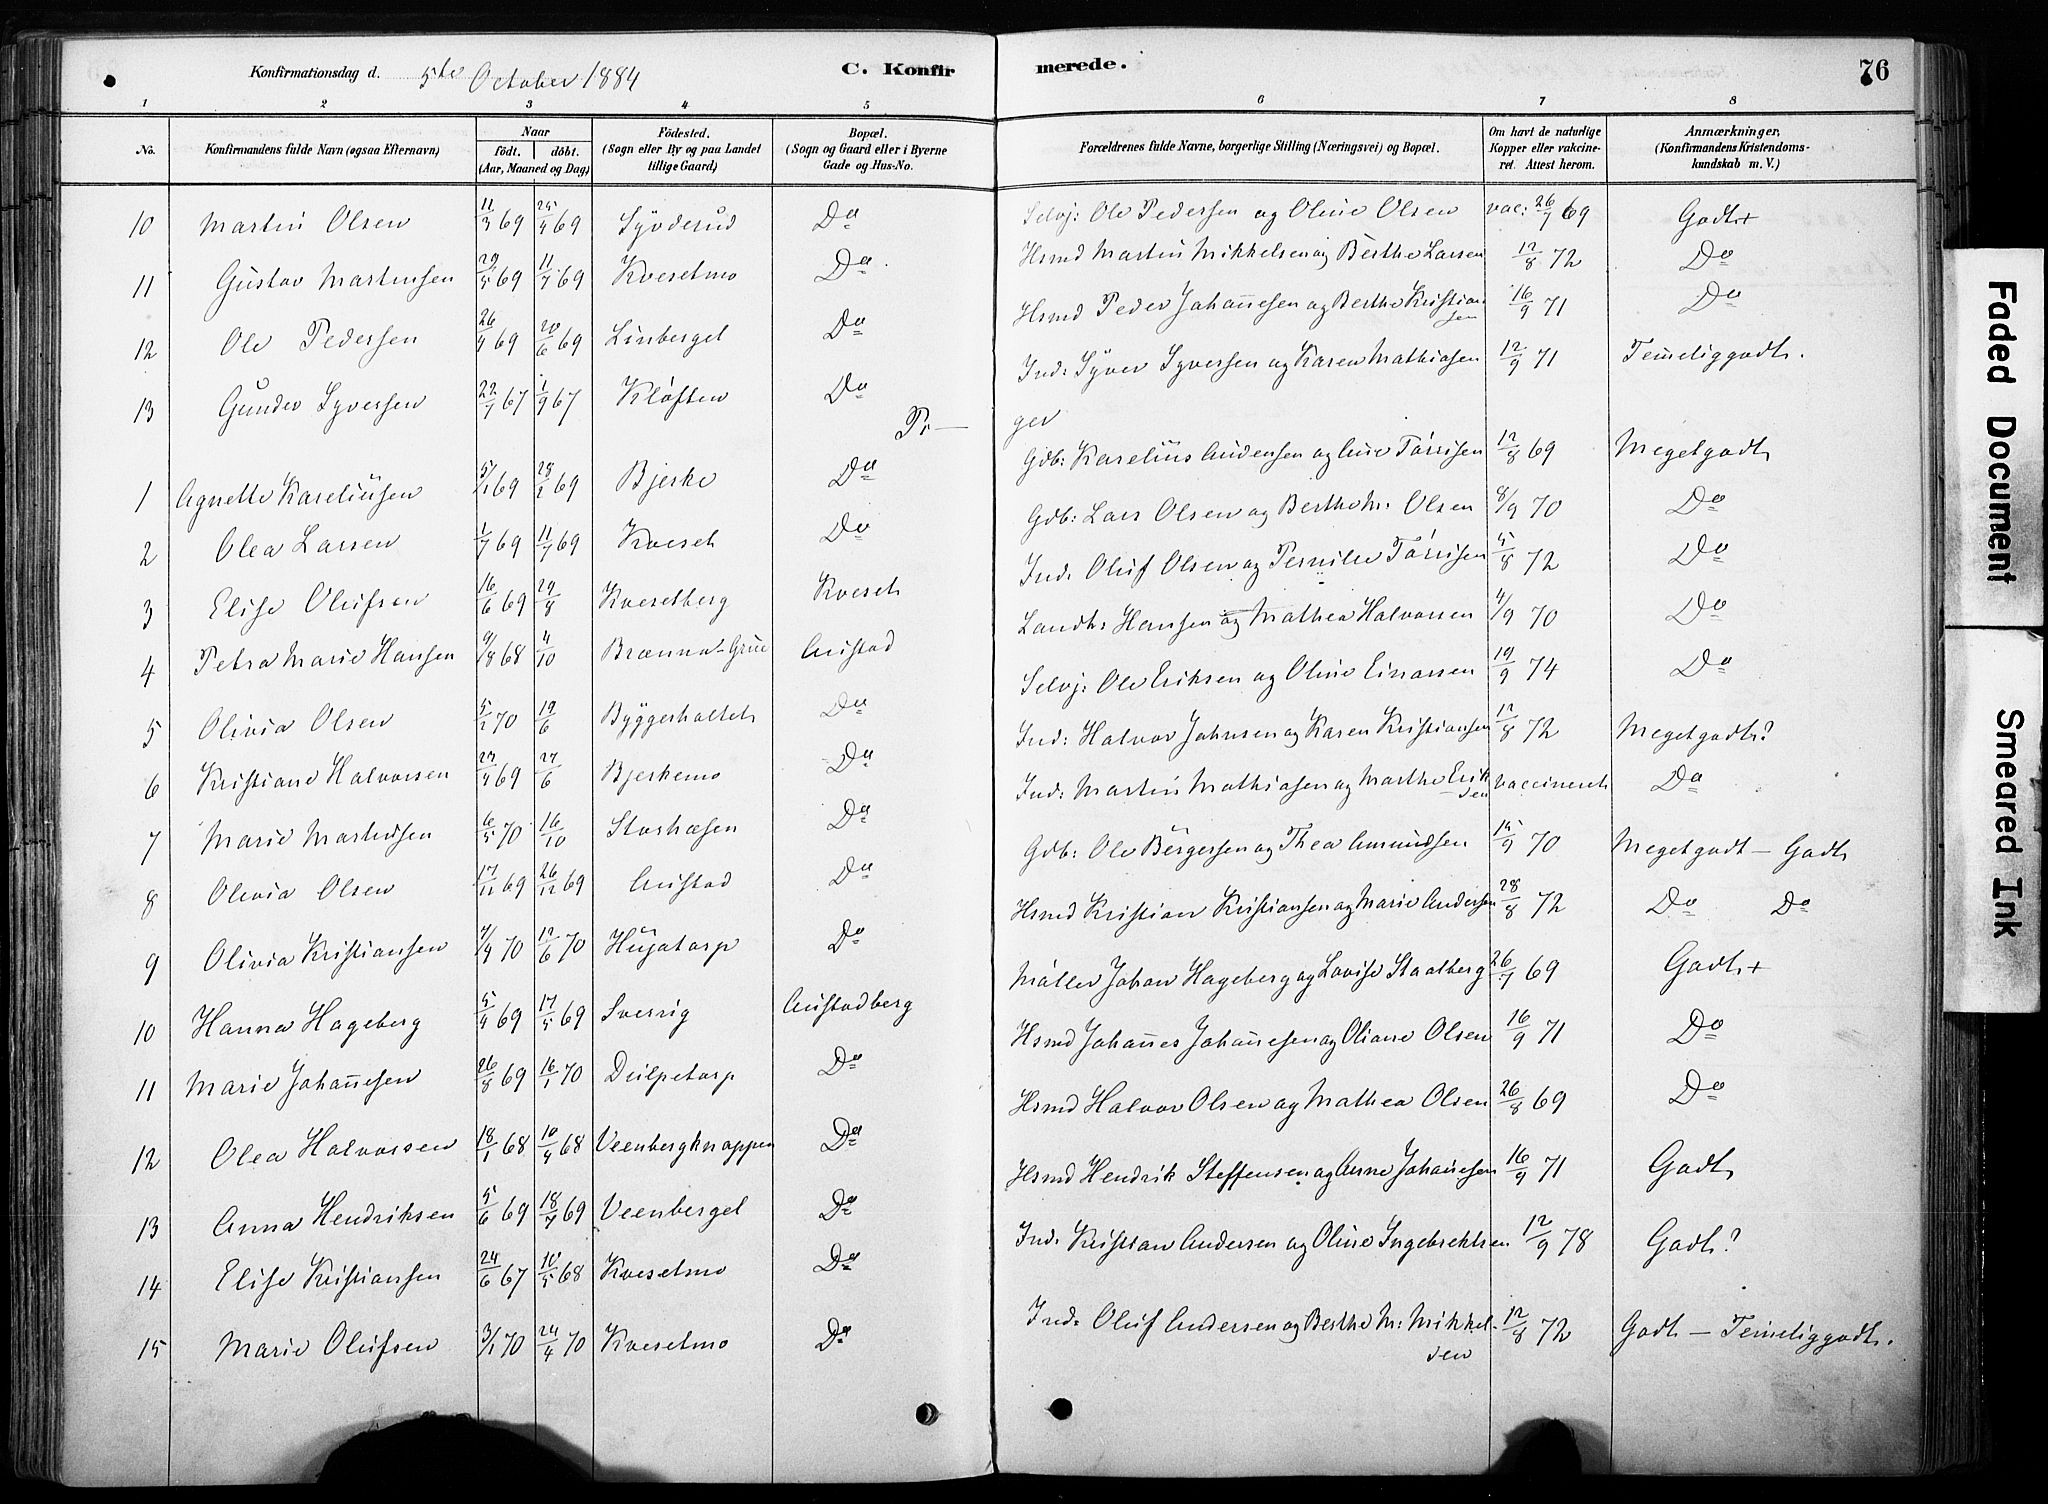 Konfirmationsdag d. 5te October 1884 C. Konfir merede. 76
1 2 3 4 5 6 7 8
No. Konfirmandens fulde Navn (ogsaa Efternavn) Naar födt. döbt. (Aar, Maaned og Dag.) Födested. (Sogn eller By og paa Landet tillige Gaard) Bopæl. (Sogn og Gaard eller i Byerne Gade og Hus-No. Forældrenes fulde Navne, borgerlige Stilling (Næringsvei) og Bopæl. Om havt de naturlige Kopper eller vakcineret. Attest herom. Anmærkninger, (Konfirmandens Kristendomskundskab m. V.)
10 Martin Olsen 11/3 69 25/4 69 Syvderud Do Selvj: Ole Pedersen og Oline Olsen vac: 26/7 69 Godt+
11 Gustav Martinsen 29/5 69 11/7 69 Kvesetmo Do Hsmd Martin Mikkelsen og Berthe Larsen 12/8 72 Do
12 Ole Pedersen 26/4 69 20/6 69 Linberget Do Hsmd Peder Johannesen og Berthe Kristiansen 16/9 71 Do
13 Gunder Syversen 22/7 67 1/9 67 Kløften Do Ind: Syver Syversen og Karen Mathiasen 12/9 71 Temeliggodt.
Pi— ger
1 Agnette Kareliusen 5/1 69 28/2 69 Bjerke Do Gdb: Karelius Audensen og Aune Tørrisen 12/8 69 Megetgodt
2 Olea Larsen 1/7 69 11/7 69 Kveset Do Gdb: Lars Olsen og Berthe M. Olsen 8/9 70 Do
3 Elise Olufsen 16/6 69 29/8 Kvesetberg Kveset Ind. Oluf Olsen og Pernille Tørrisen 5/8 72 Do
4 Petra Marie Hansen 9/8 68 4/10 Brænna-Grue Austad Landh: Hansen og Mathea Halvorsen 4/9 70 Do
5 Olivia Olsen 5/2 70 19/6 Byggerholtet Do Selvj: Ole Eriksen og Oline Einarsen 19/9 74 Do
6 Kristiane Halvorsen 23/4 69 27/6 Bjerkemo Do Ind: Halvor Johnsen og Karen Kristiansen 12/8 72 Megetgodt?
7 Marie Martinsen 6/5 70 16/10 Storhæsen Do Ind: Martin Mathiasen og Marthe Eriksen vaccineret Do
8 Olivia Olsen 17/11 69 26/12 69 Austad Do Gdb: Ole Børgersen og Thea Amundsen 15/9 70 Megetgodt — Godt
9 Olivia Kristiansen 4/4 70 12/6 70 Hugatorp Do Hsmd Kristian Kristiansen og Marie Andersen 28/8 72 Do Do
10 Hanna Hageberg 5/4 69 17/5 69 Sverrig Austadberg Møller Johan Hageberg og Lovise Staalberg 26/7 69 Godt+
11 Marie Johannesen 26/8 69 16/1 70 Dulpetorp Do Hsmd Johannes Johannesen og Oliane Olsen 16/9 71 Do
12 Olea Halvorsen 18/1 68 10/4 68 Veenbergknappen Do Hsmd Halvor Olsen og Mathea Olsen 26/8 69 Do
13 Anna Hendriksen 5/6 69 18/7 69 Veenberget Do Hsmd Hendrik Steffensen og Anne Johannesen 16/9 71 Godt
14 Elise Kristiansen 24/6 67 10/5 68 Kvesetmo Do Ind. Kristian Andersen og Oline Ingebrektsen 12/9 78 Godt?
15 Marie Olufsen 3/1 70 24/4 70 Kvesetmo Do Ind: Oluf Andersen og Berthe M. Mikkelsen 12/8 72 Godt — Temeliggodt.
Faded Document
Smeared Ink